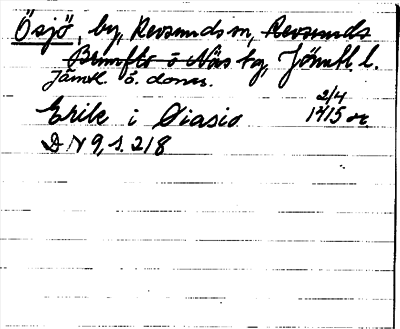 Ösjö, by, Revsunds sn, Revsunds
Brunflo o Näs tg, Jämtl. l.
Jämtl. ö. domst.
Erik i Øiasio 2/4 1415 or.
D N 9, s. 218